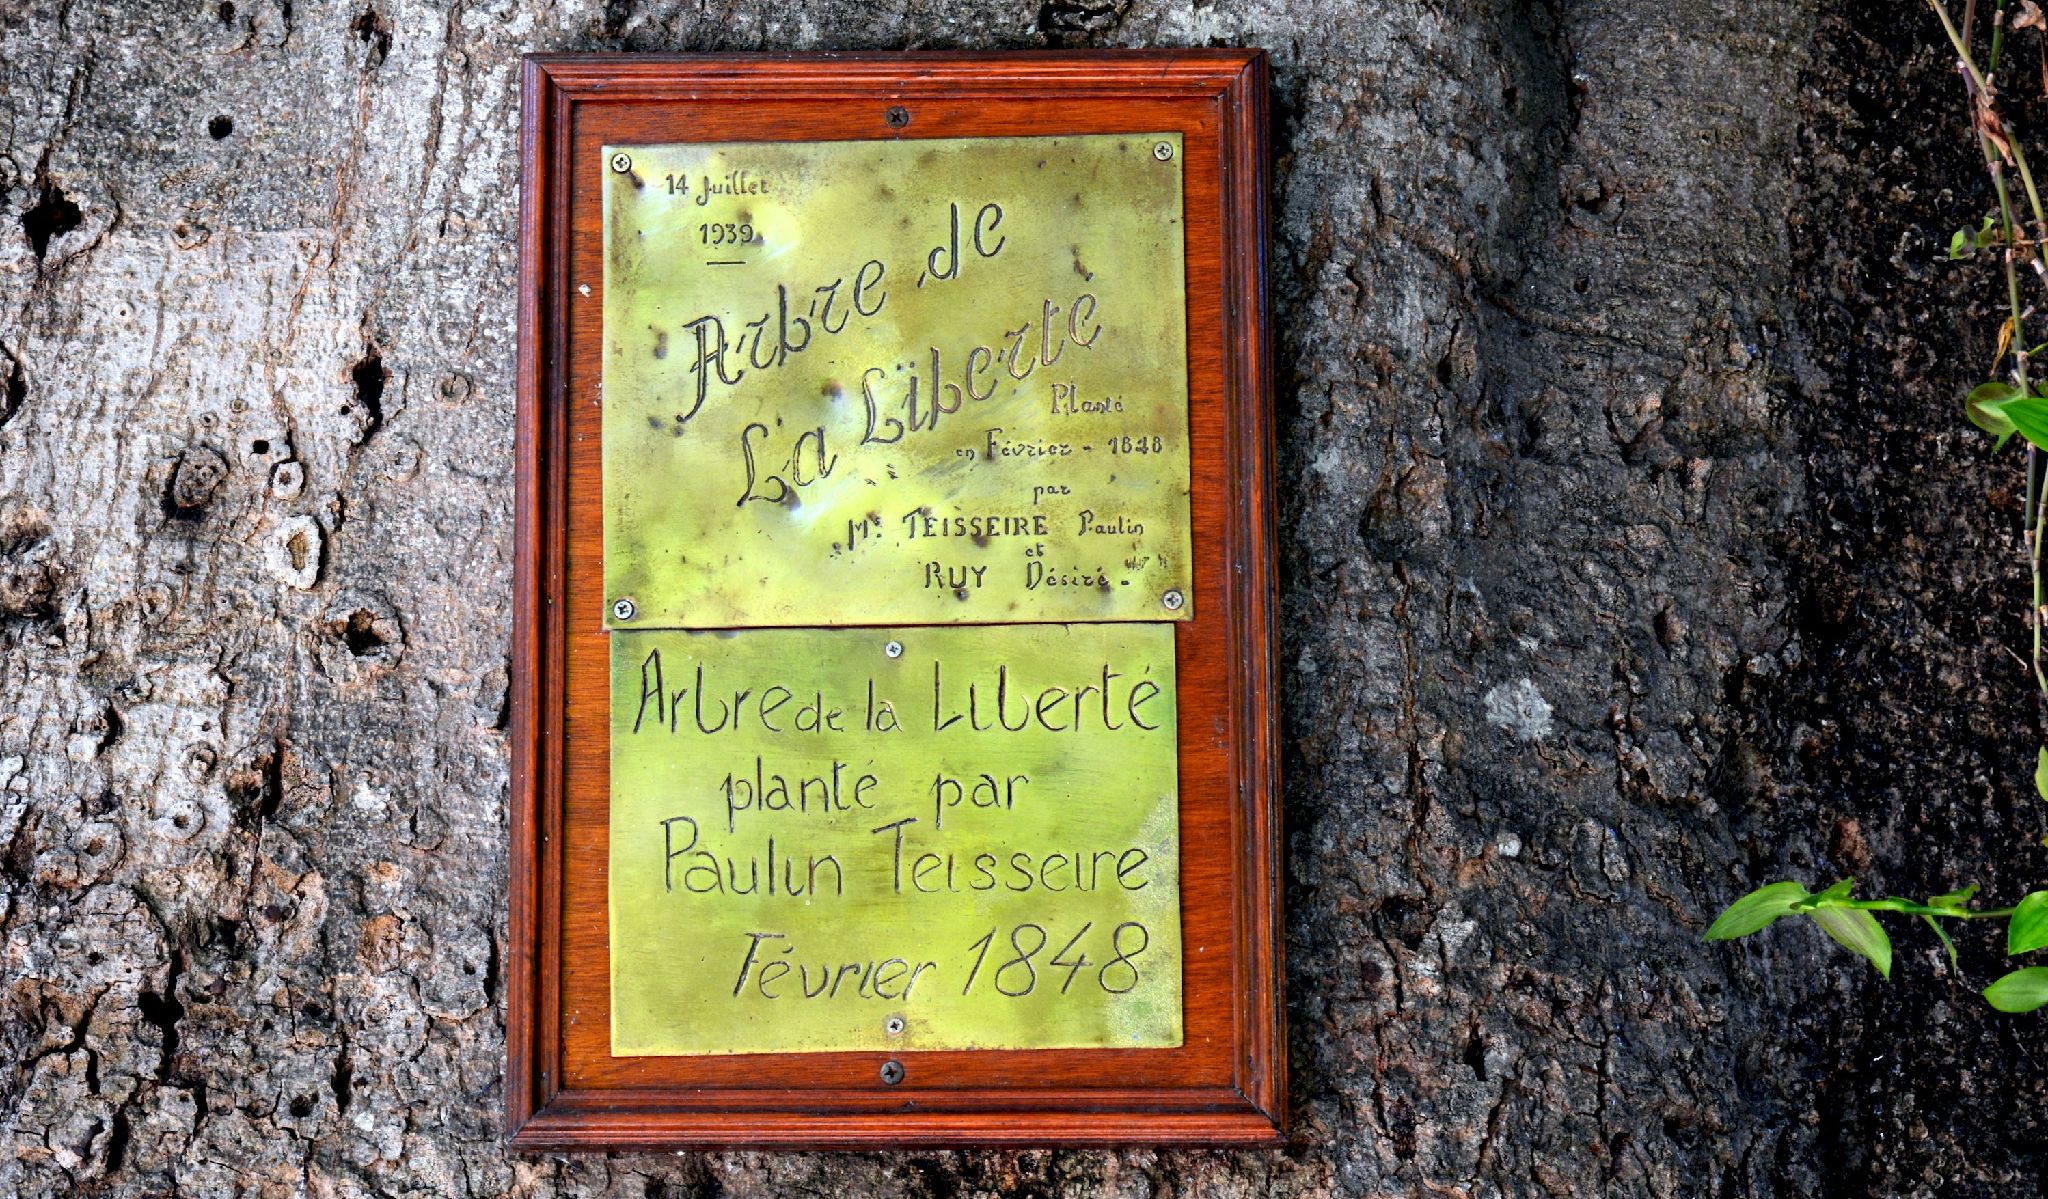 14 Juillet
1939
Arbre de
La Liberté
Planté
en Février - 1848
par
Mr TEISSEIRE Paulin
et
RUY Désiré -
Arbre de la Liberté
planté par
Paulin Teisseire
Février 1848